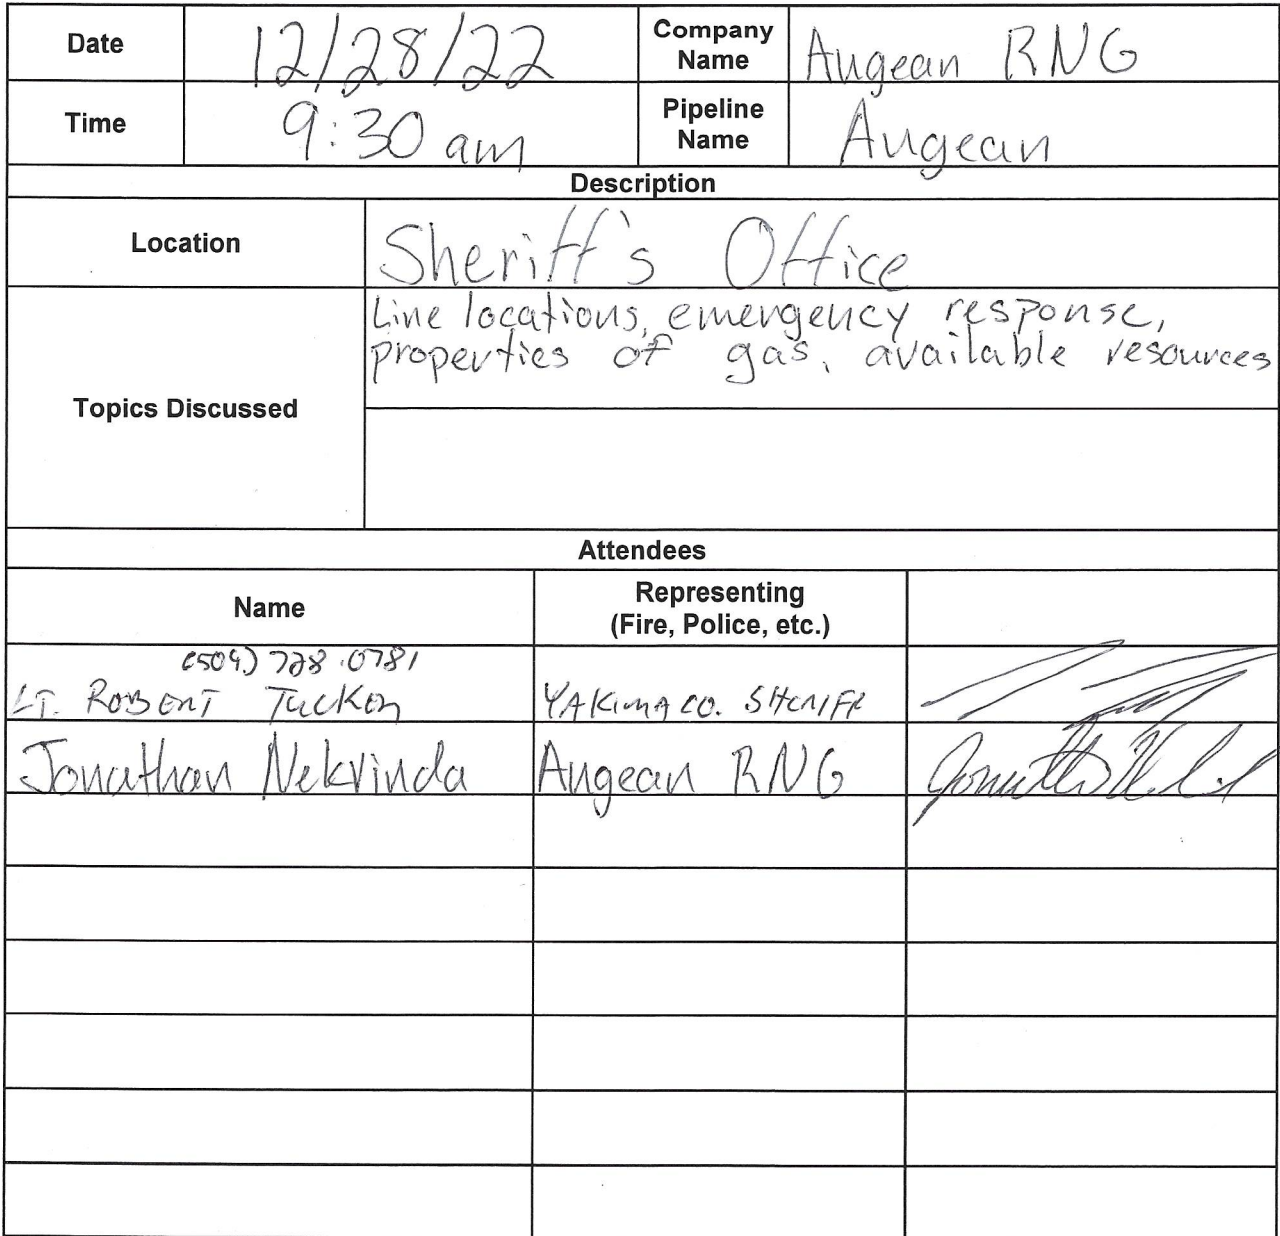 Date 12/28/22 Company Name Augean RNG
Time 9:30 am Pipeline Name Augean
Description
Location Sheriff's Office
Topics Discussed Line locations, emergency response,
properties of gas, available resources
Attendees
Name Representing (Fire, Police, etc.)
(509) 728.0781
LT. ROBERT TUCKER YAKIMA CO. SHERIFF
Jonathan Nekvinda Augean RNG